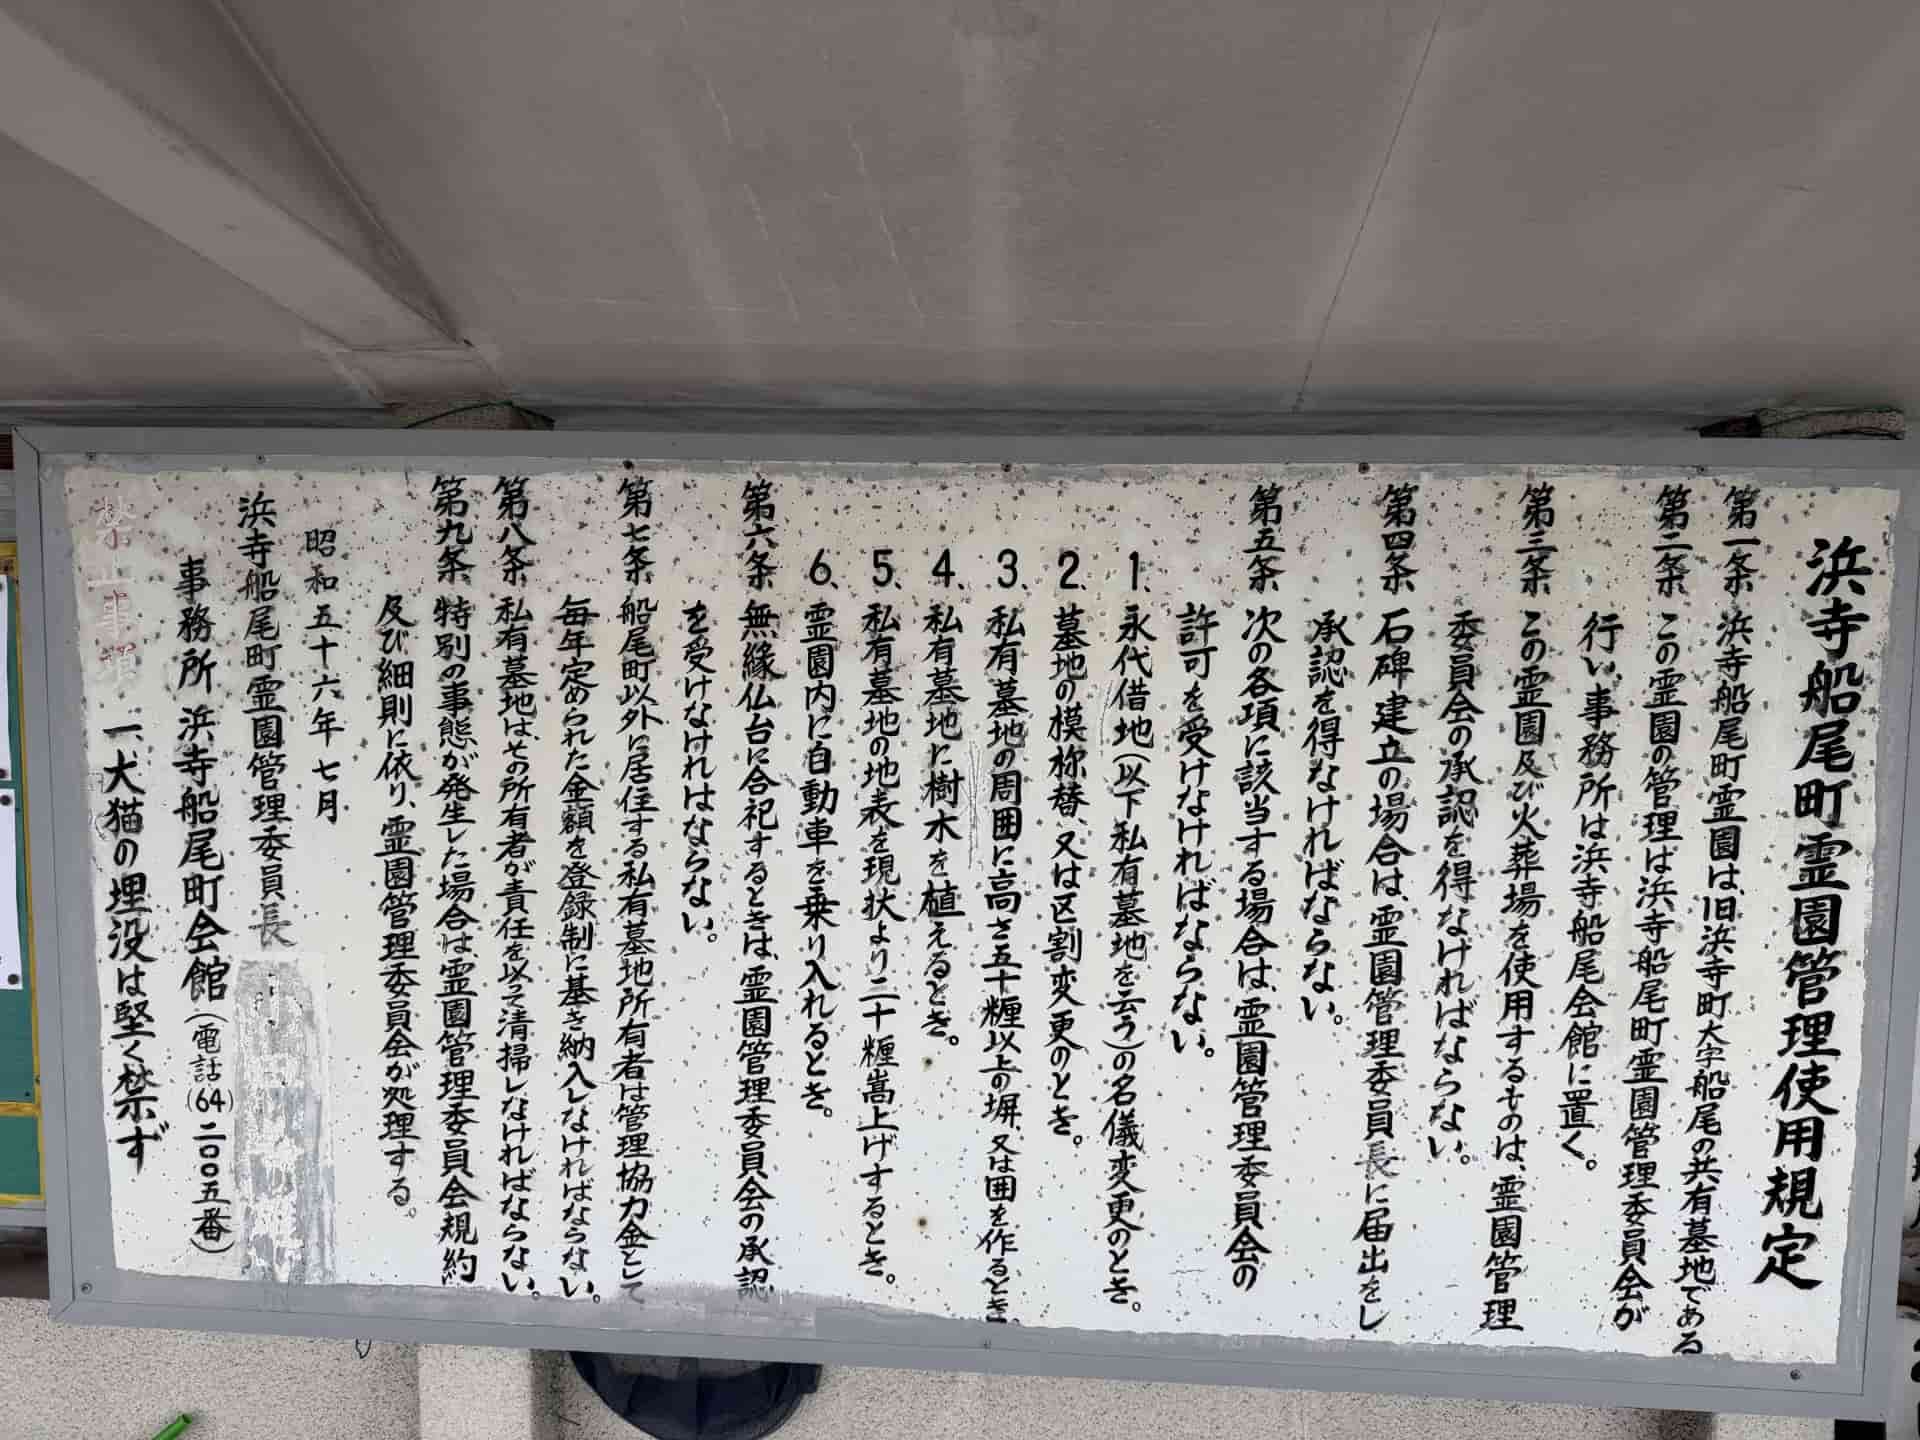 浜寺船尾町霊園管理使用規定
第一条 浜寺船尾町霊園は、旧浜寺町大字船尾の共有墓地である
第二条 この霊園の管理は浜寺船尾町霊園管理委員会が
行い事務所は浜寺船尾会館に置く。
第三条 この霊園及び火葬場を使用するものは、霊園管理
委員会の承認を得なければならない。
第四条 石碑建立の場合は、霊園管理委員長に届出をし
承認を得なければならない。
第五条 次の各項に該当する場合は、霊園管理委員会の
許可を受けなければならない。
1. 永代借地(以下私有墓地を云う)の名儀変更のとき。
2. 墓地の模様替、又は区割変更のとき。
3. 私有墓地の周囲に高さ五十糎以上の塀、又は囲を作るとき。
4. 私有墓地に樹木を植えるとき。
5. 私有墓地の地表を現状より二十糎嵩上げするとき。
6. 霊園内に自動車を乗り入れるとき。
第六条 無縁仏台に合祀するときは、霊園管理委員会の承認
を受けなければならない。
第七条 船尾町以外に居住する私有墓地所有者は管理協力金として
毎年定められた金額を登録制に基き納入しなければならない。
第八条 私有墓地は、その所有者が責任を以て清掃しなければならない。
第九条 特別の事態が発生した場合は、霊園管理委員会規約
及び細則に依り、霊園管理委員会が処理する。
昭和五十六年七月
浜寺船尾町霊園管理委員長
事務所 浜寺船尾町会館(電話(64)二〇〇五番)
禁止事項 一、犬猫の埋没は堅く禁ず